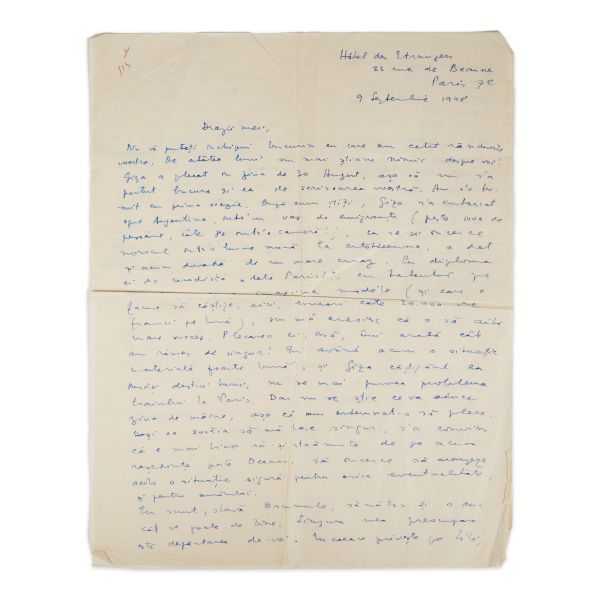 115
Hôtel des Etrangers
33 rue de Beaune
Paris 7e
9 Septembrie 1948
Dragii mei,
Nu vă puteți închipui bucuria cu care am citit rândurile
voastre. De atâtea luni nu mai știam nimic despre voi!
Giza a plecat în ziua de 30 August, așa că nu s'a
putut bucura și ea de scrisoarea voastră. Am s'o tri-
mit cu prima ocazie. După cum știți, Giza s'a îmbarcat
spre Argentina, într'un vas de emigranți (peste 1000 de
persoane, câte într'o cameră!), ca să-și încerce
norocul într'o lume nouă. Ca întotdeauna, a dat
și acum dovadă de un mare curaj. Cu diploma
ei de modistă "dela Paris", cu talentul
modele (și care o
făcuse să câștige, aici, uneori câte 20.000 de
franci pe lună), nu mă îndoiesc că o să aibe
mare succes. Plecarea ei, însă, îmi arată cât
am rămas de singur! Eu având acum o situație
materială foarte bună și Giza câștigând ea
însăși destui bani, nu se mai punea problema
traiului la Paris. Dar nu se știe ce va aduce
ziua de mâine, așa că am îndemnat-o să plece.
Deși ea să mă lase singur, s'a convins
că e mai bine să-și strămute de pe acum
reședința peste Ocean, să încerce să aranjeze
acolo o situație sigură pentru orice eventualitate,
și pentru amândoi.
Eu sunt, slavă Domnului, sănătos și o duc
cât se poate de bine. Singura mea preocupare
este depărtarea de voi. In ceeace privește pe Lili,